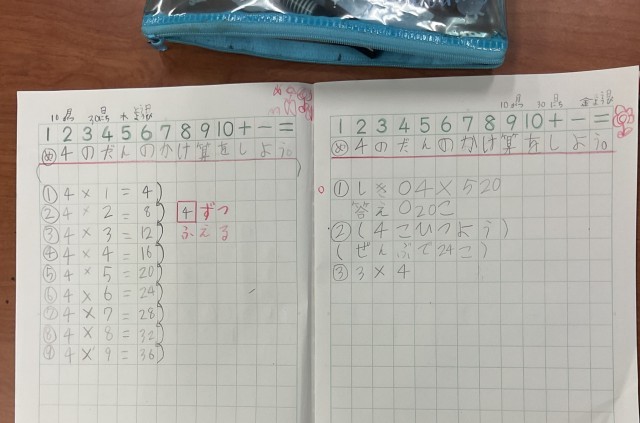 1 2 3 4 5 6 7 8 9 10 + − =
め 4のだんのかけ算をしよう。
① 4 × 1 = 4
② 4 × 2 = 8 4ずつ
③ 4 × 3 = 12 ふえる
④ 4 × 4 = 16
⑤ 4 × 5 = 20
⑥ 4 × 6 = 24
⑦ 4 × 7 = 28
⑧ 4 × 8 = 32
⑨ 4 × 9 = 36
1 2 3 4 5 6 7 8 9 10 + − =
め 4のだんのかけ算をしよう。
① しき ○ 4×5 20
答え ○ 20こ
② (4こひつよう)
(ぜんぶで24こ)
③ 3×4